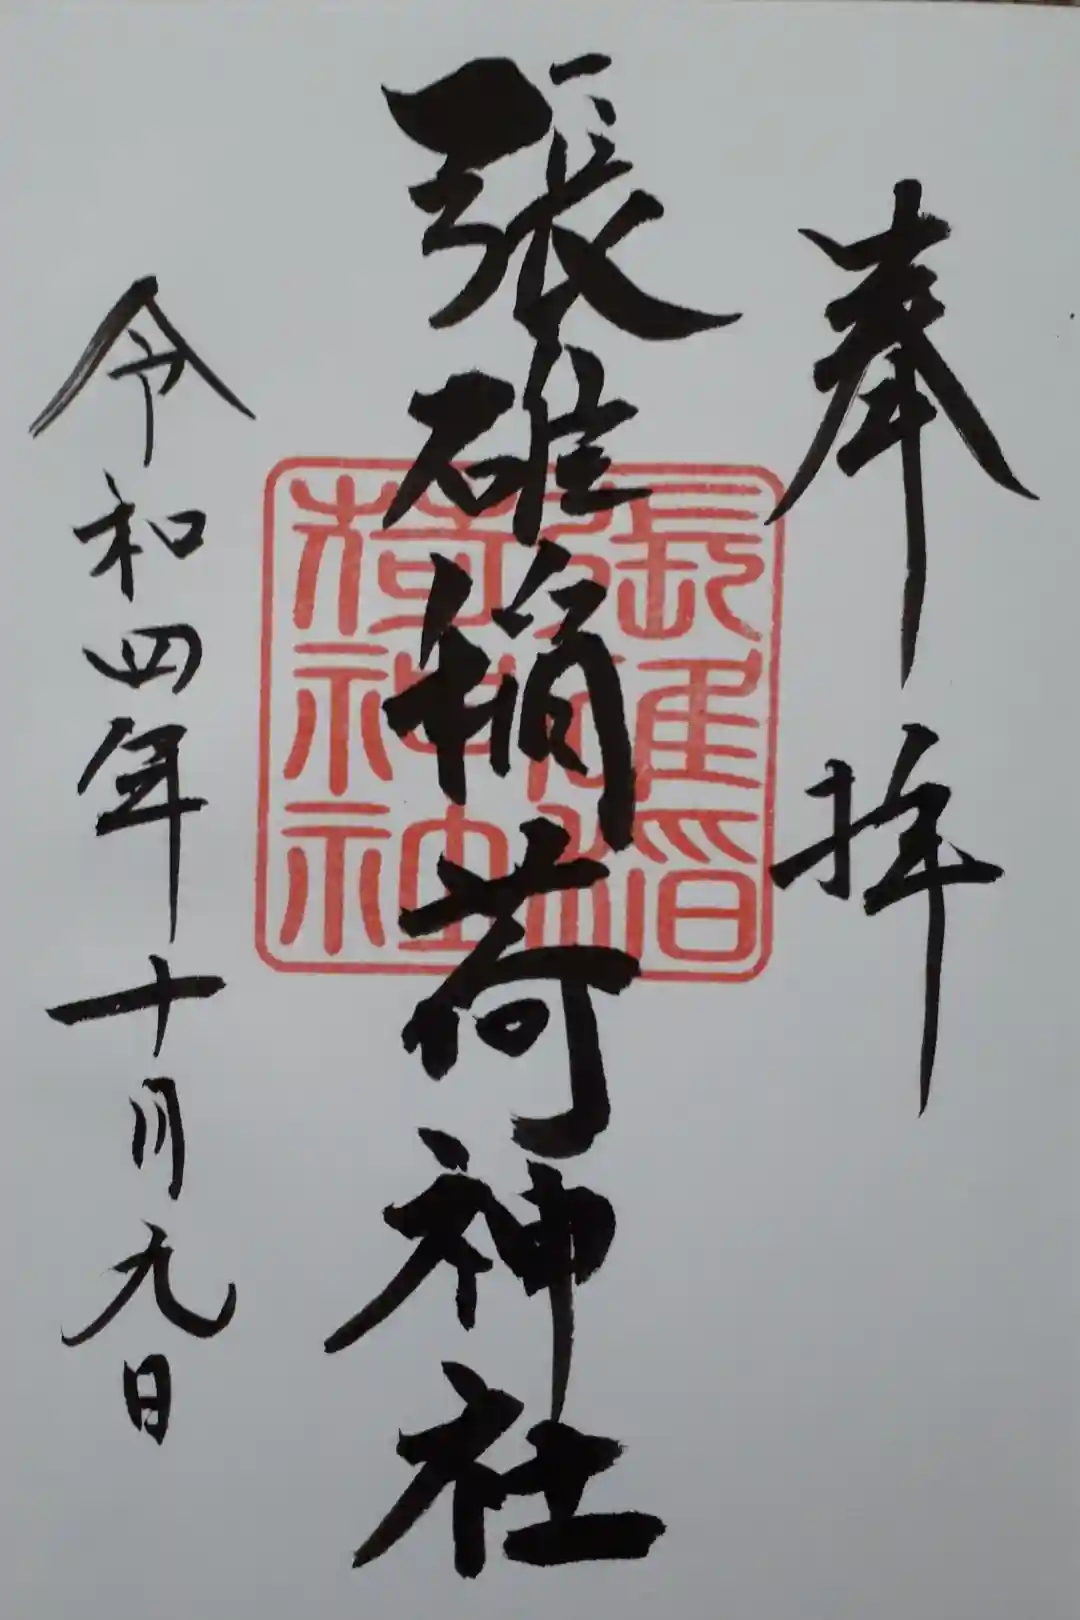 奉拝
張碓稲荷神社
張碓稲
荷神社
令和四年十月九日